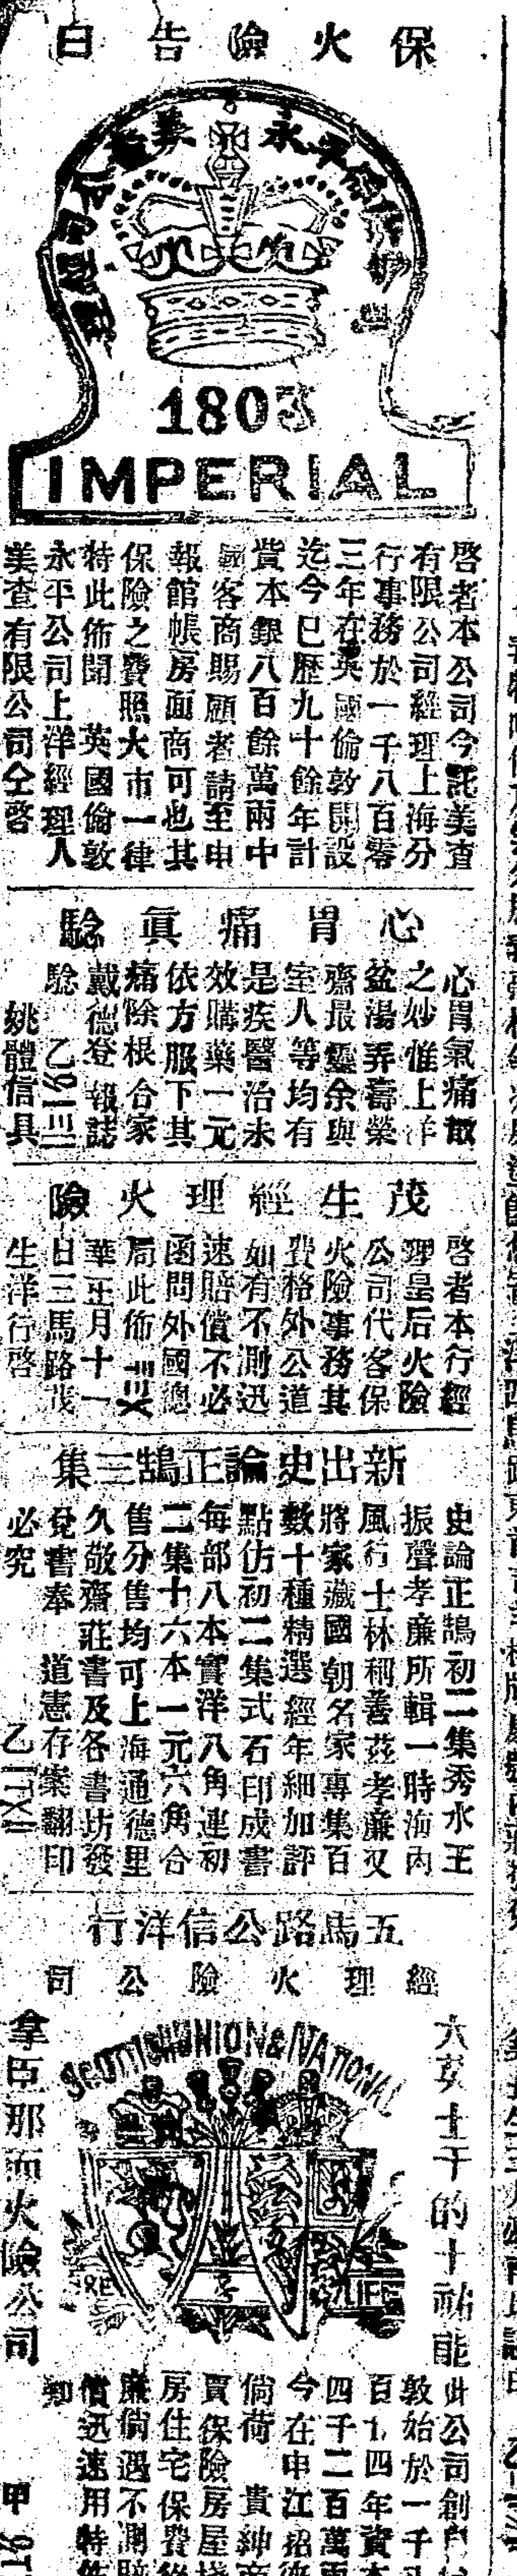 保火險告白
1803
IMPERIAL
啓者本公司今託美查
有限公司經理上海分
行事務於一千八百零
三年在英國倫敦開設
迄今已歷九十餘年計
貲本銀八百餘萬兩中
國客商賜顧者請至申
報館帳房面商可也其
保險之費照大市一律
特此佈聞 英國倫敦
永平公司上洋經理人
美查有限公司仝啓
心胃痛眞騐
心胃氣痛散
之妙惟上洋
盆湯弄壽榮
齋最靈余與
室人等均有
是疾醫治未
效購藥一元
依方服下其
痛除根合家
戴德登報誌
騐
姚體信具
茂生經理火險
啓者本行經
理皇后火險
公司代客保
火險事務其
費格外公道
如有不測迅
速賠償不必
函問外國總
局此佈
華正月十一
日三馬路茂
生洋行啓
新出史論正鵠三集
史論正鵠初二集秀水王
振聲孝廉所輯一時海內
風行士林稱善茲孝廉又
將家藏國朝名家專集百
數十種精選經年細加評
點仿初二集式石印成書
每部八本實洋八角連初
二集十六本一元六角合
售分售均可上海通德里
久敬齋莊書及各書坊發
兌書奉 道憲存案翻印
必究
五馬路公信洋行
經理火險公司
SCOTTISH UNION & NATIONAL
拿臣那而火險公司
此公司創
敦始於一千
四千二百萬兩
今在申江招
倘荷 貴紳商
賈保險房屋棧
房住宅保費
廉倘遇不測賠
償迅速用特佈
知